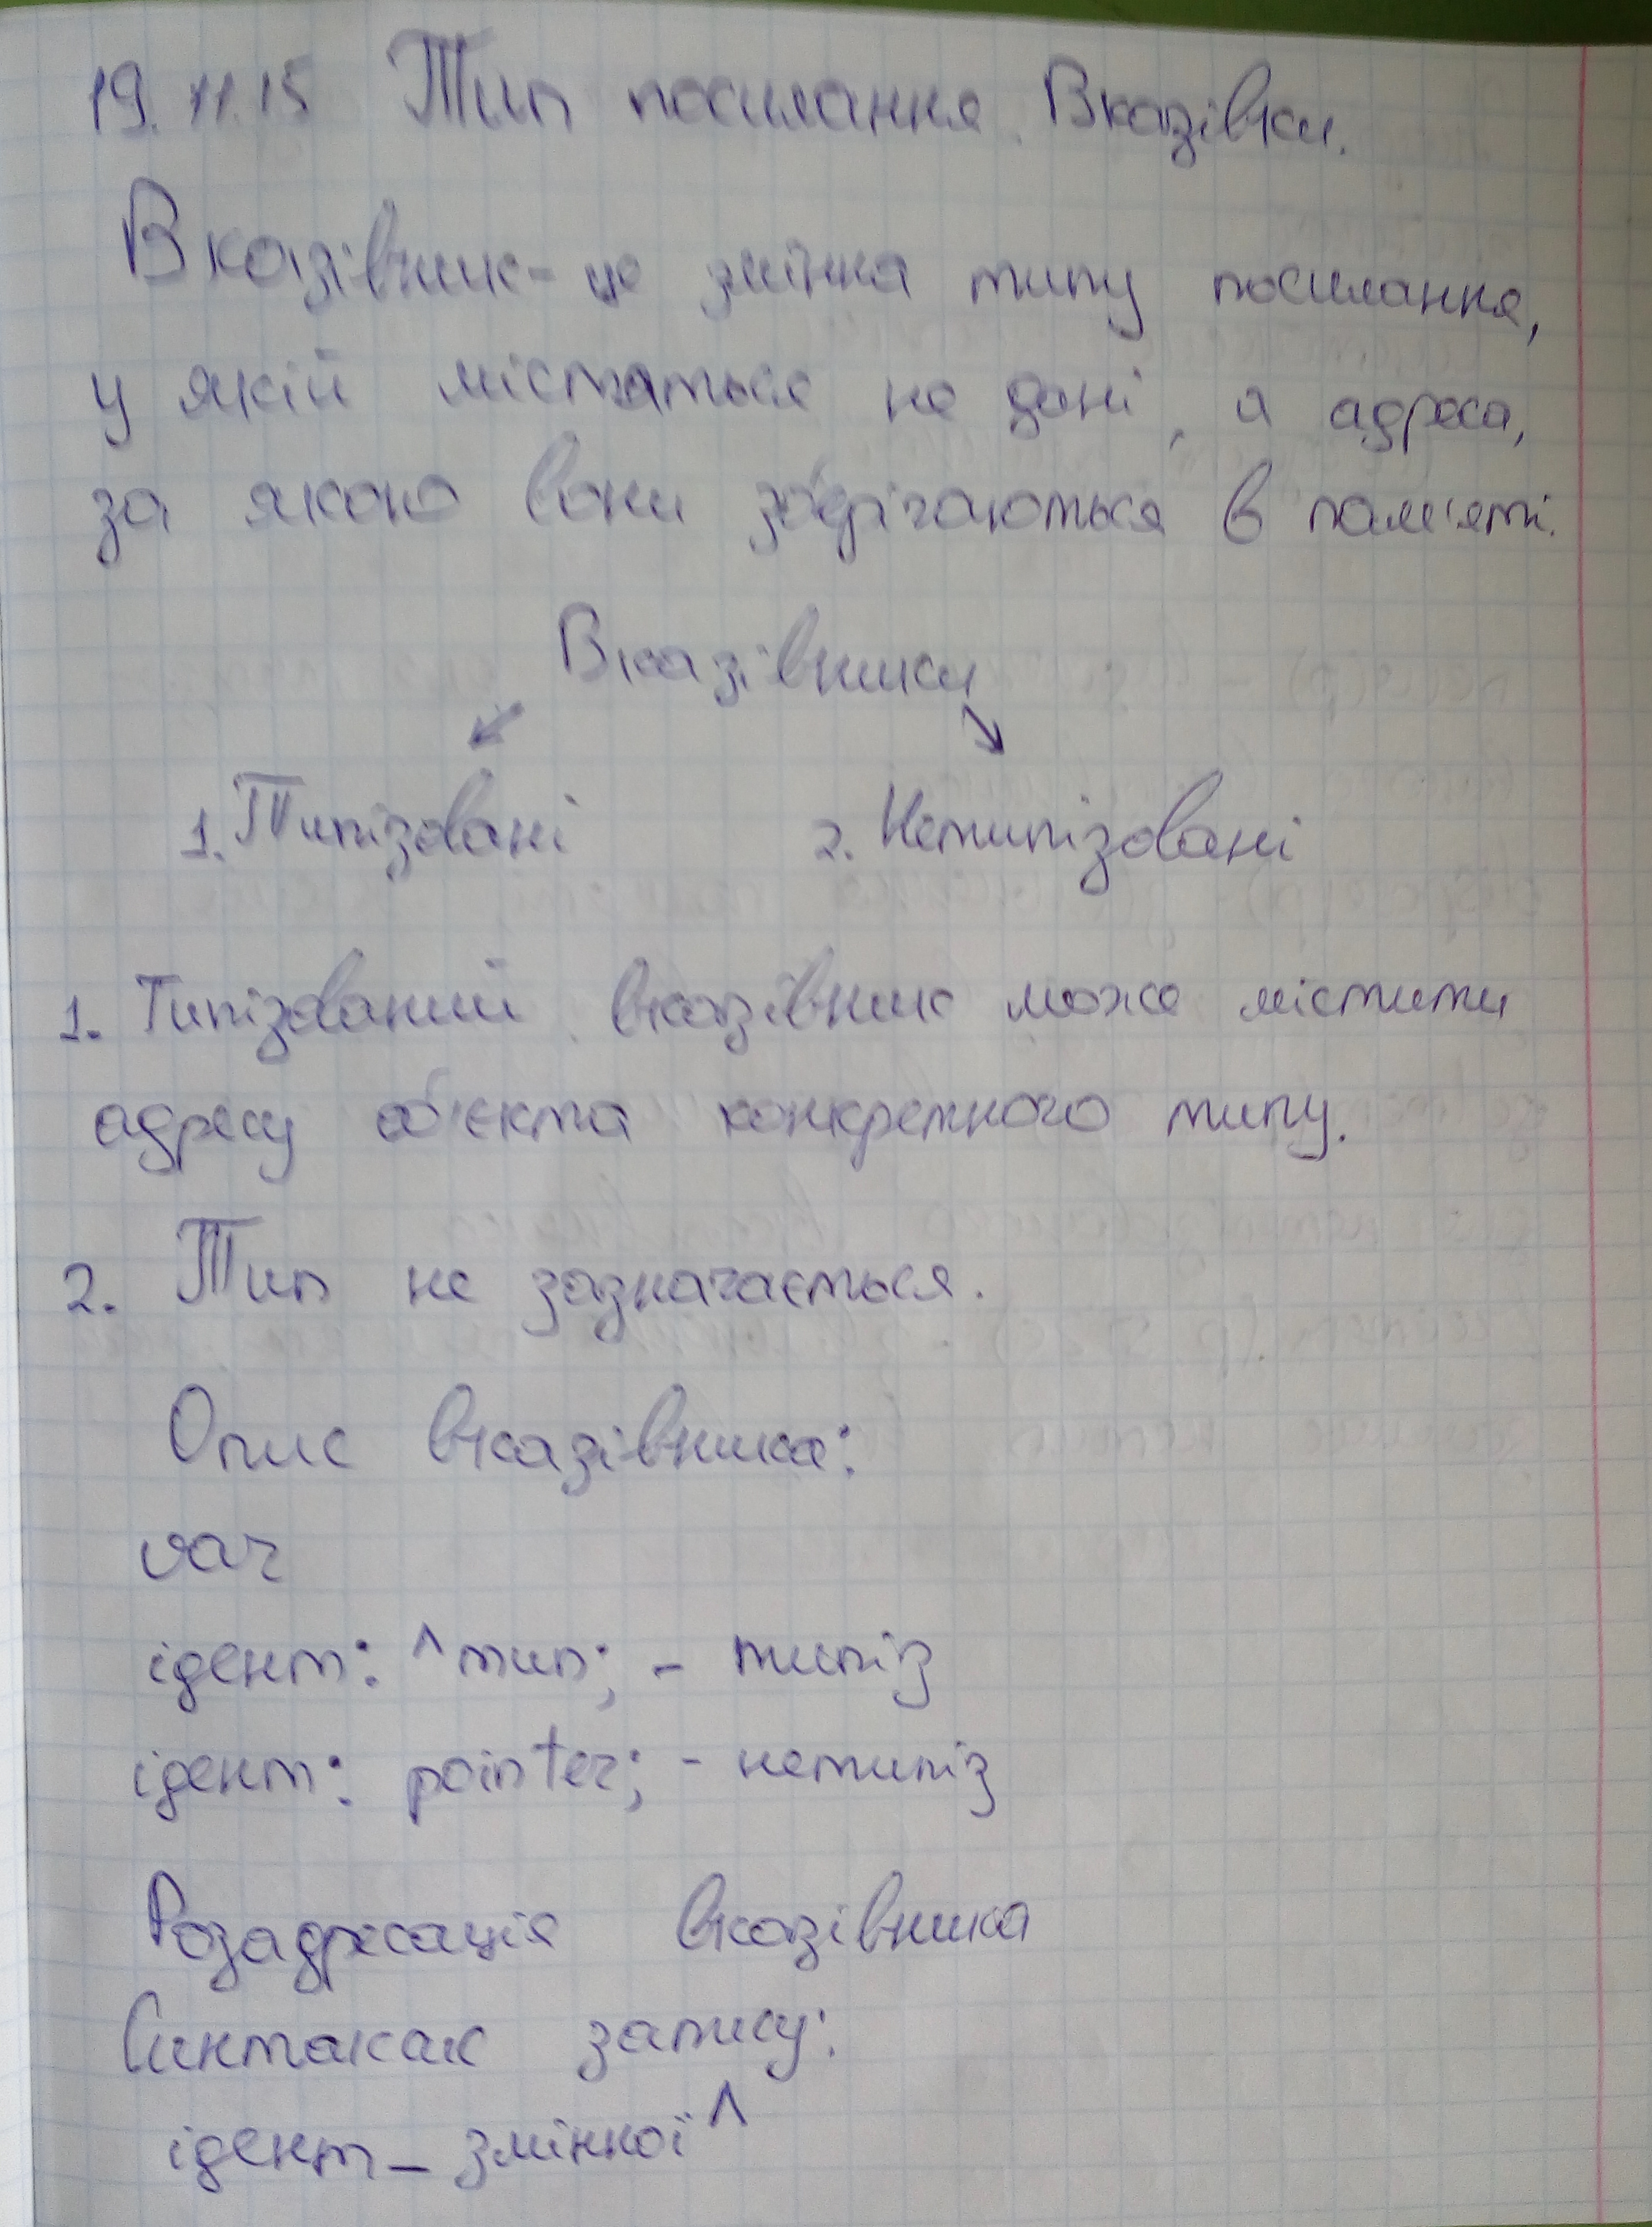 19.11.15 Тип посилання. Вказівки.
Вказівник - це змінна типу посилання,
у якій містяться не дані, а адреса,
за якою вони зберігаються в пам'яті.
Вказівники
1. Типізовані 2. Нетипізовані
1. Типізований вказівник може містити
адресу об'єкта конкретного типу.
2. Тип не зазначається.
Опис вказівника:
var
ідент: ^тип; - типіз
ідент: pointer; - нетипіз
Розадресація вказівника
Синтаксис запису:
ідент_змінної^